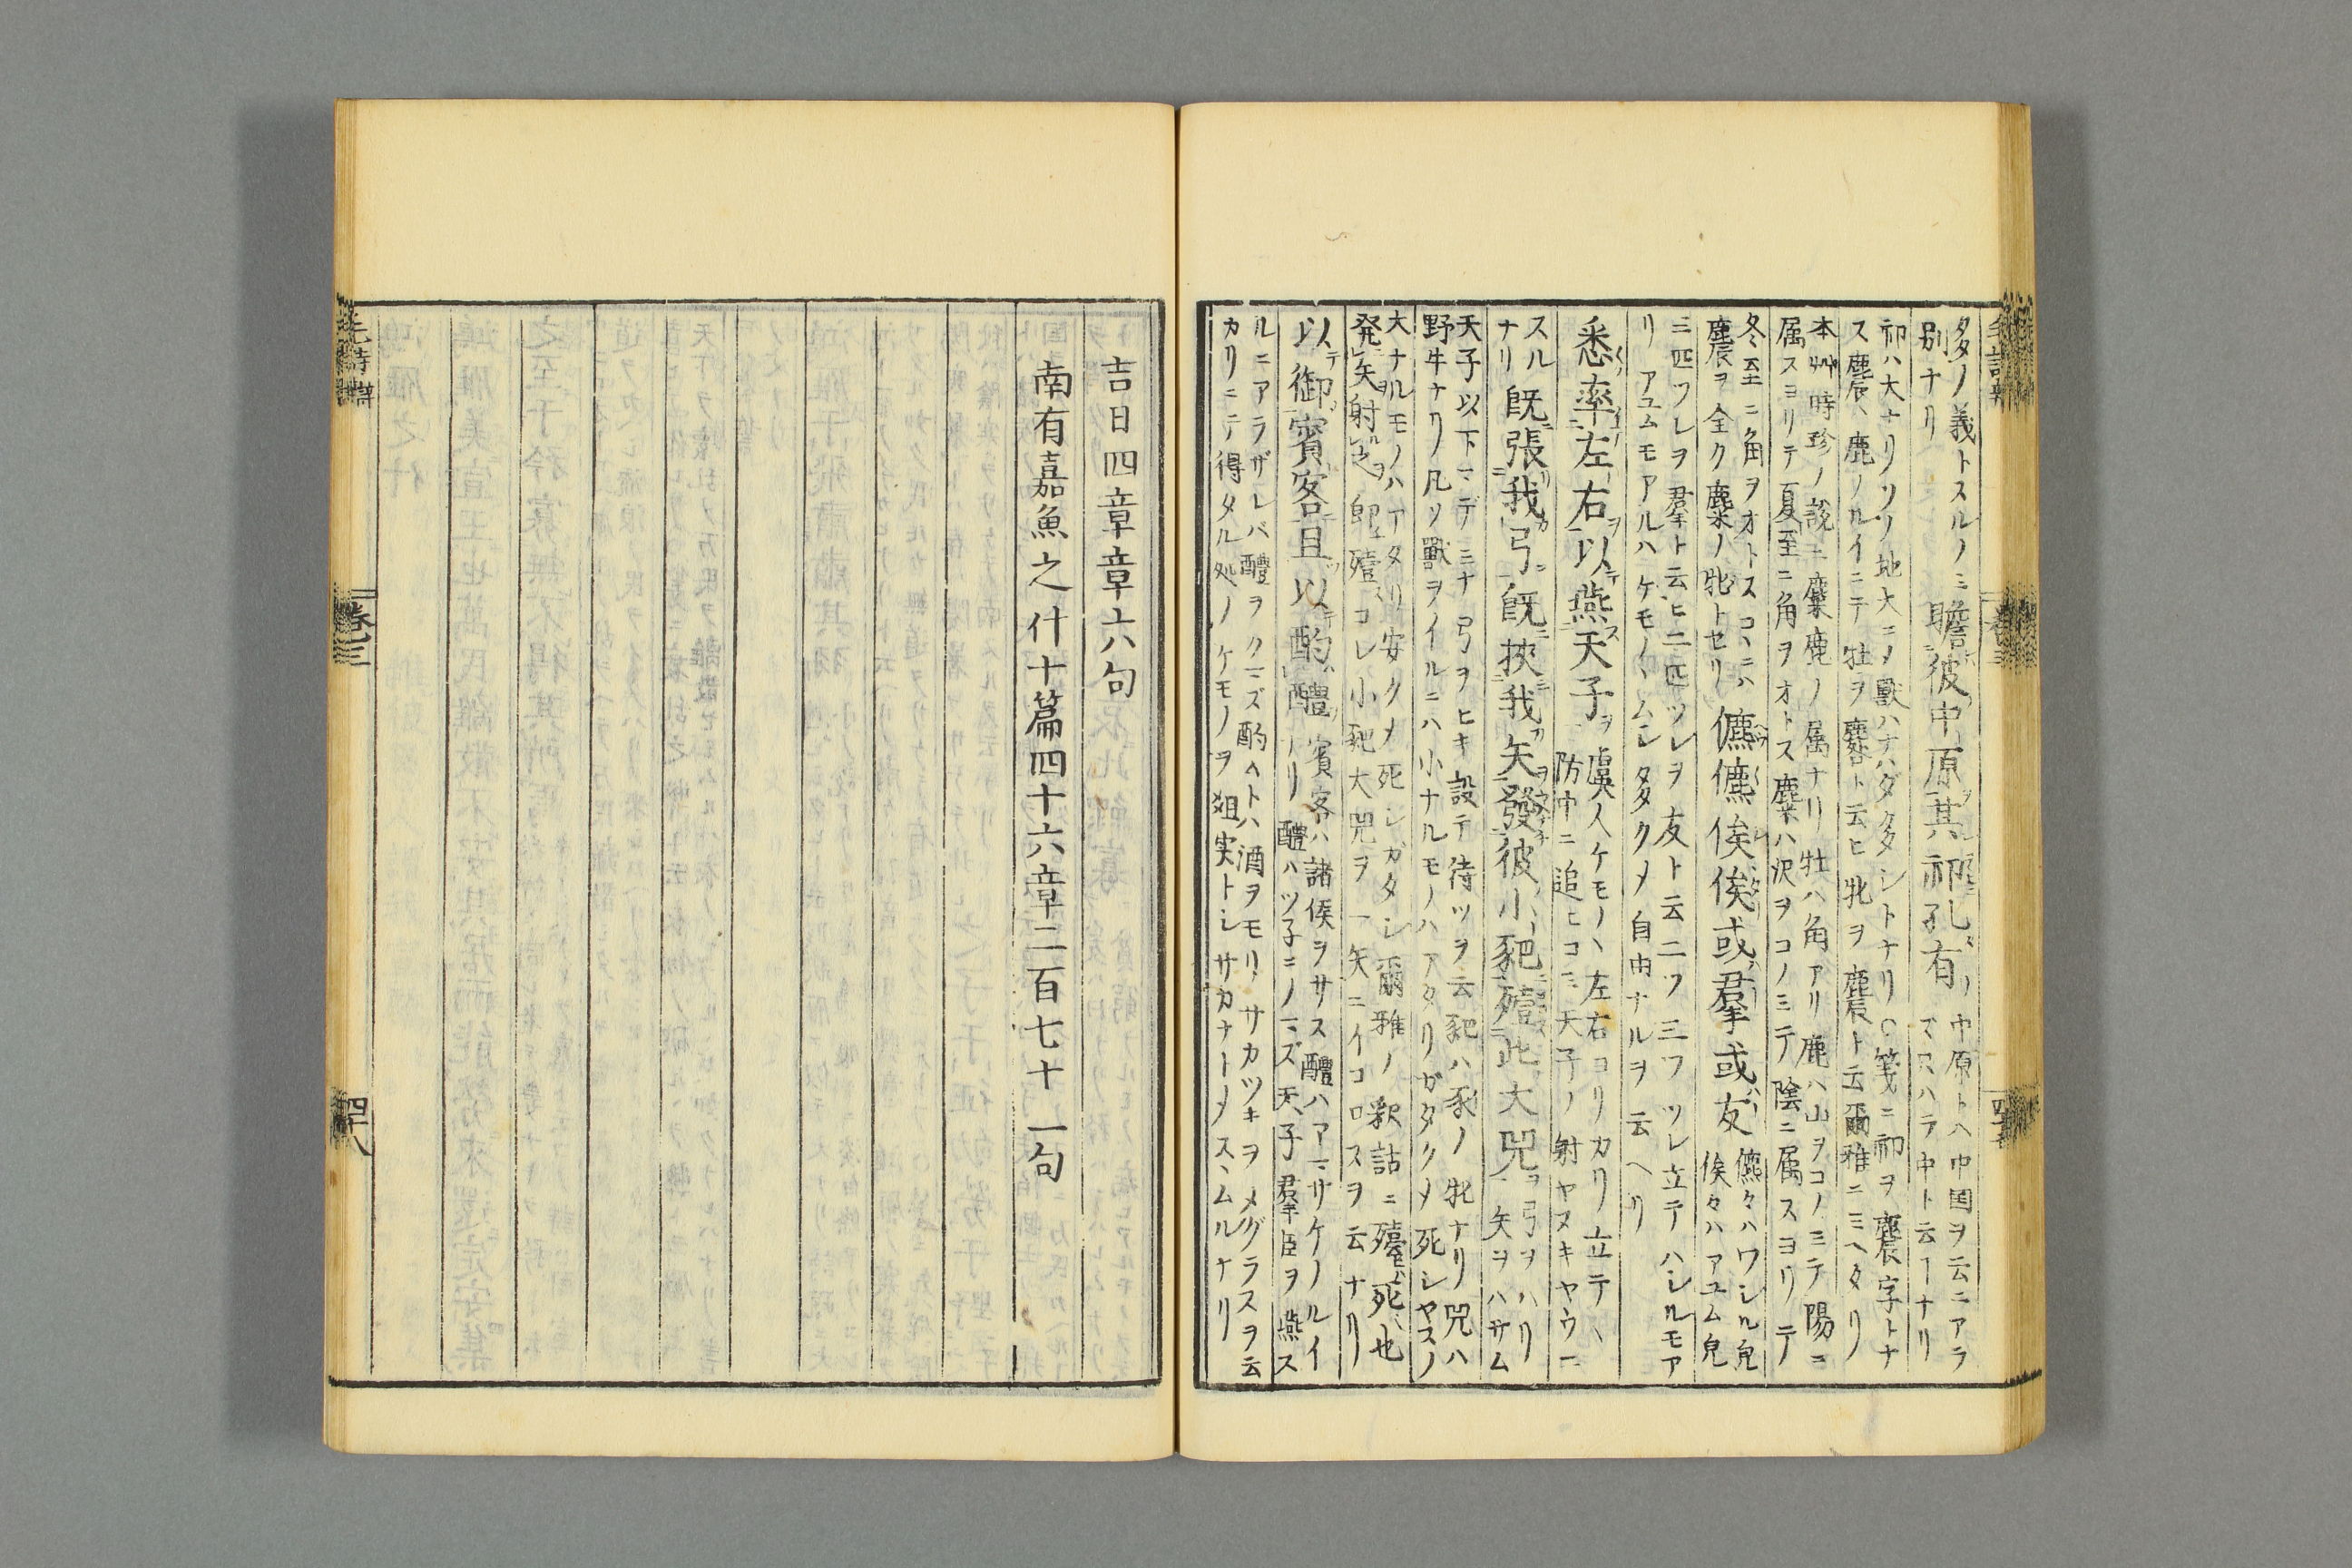 多ノ義トスルノミ
別ナリ
瞻彼中原其祁孔有
中原トハ中国ヲ云ニアラ
ズ只ハラ中ト云ヿナリ
祁ハ大ナリソノ地大ニメ獸ハナハダ多シトナリ○箋ニ祁ヲ麎字トナ
ス麎ハ鹿ノルイニテ牡ヲ麔ト云ヒ牝ヲ麎ト云爾雅ニミヘタリ
本艸時珍ノ説ニ麋鹿ノ属ナリ牡ハ角アリ鹿ハ山ヲコノミテ陽ニ
属スヨリテ夏至ニ角ヲオトス麋ハ沢ヲコノミテ陰ニ属スヨリテ
冬至ニ角ヲオトスコヽニハ
麎ヲ全ク麋ノ牝トセリ
儦儦俟俟或羣或友
儦々ハワシル皃
俟々ハアユム皃
三匹ツレヲ羣ト云ヒ二匹ツレヲ友ト云二ツ三ツツレ立テハシルモア
リアユムモアルハケモノヽムレ多クメ自由ナルヲ云ヘリ
悉率左右以燕天子
虞人ケモノヽ左右ヨリカリ立テヽ
防中ニ追ヒコミ天子ノ射ヤスキヤウニ
スル
ナリ
既張我弓既挾我矢發彼小豝殪此大兕
弓ヲハリ
矢ヲハサム
天子以下マデミナ弓ヲヒキ設テ待ツヲ云豝ハ豕ノ牝ナリ兕ハ
野牛ナリ凡ソ獸ヲイルニハ小ナルモノハアタリガタクメ死シヤスク
大ナルモノハアタリ安クメ死シガタシ爾雅ノ釈詁ニ殪死也
発矢射之即殪コレ小豝大兕ヲ一矢ニイコロスヲ云ナリ
以御賓客且以酌醴
賓客ハ諸侯ヲサス醴ハアマサケノルイ
ナリ醴ハツ子ニノマズ天子羣臣ヲ燕ス
ルニアラザレバ醴ヲクマズ酌ヘトハ酒ヲモリサカツキヲメグラスヲ云
カリニテ得タル処ノケモノヲ俎実トシサカナトメスヽムルナリ
吉日四章章六句
南有嘉魚之什十篇四十六章二百七十一句
毛詩
卷三
四十八